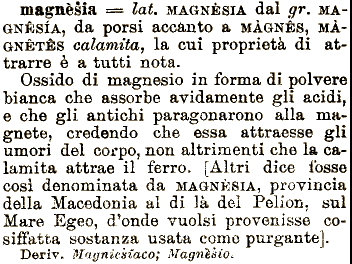 magnèṡia = lat. MAGNÈSIA dal gr. MA-
GNÊSÍA, da porsi accanto a MÀGNÊS, MÀ-
GNÊTÊS calamita, la cui proprietà di at-
trarre è a tutti nota.
Ossido di magnesio in forma di polvere
bianca che assorbe avidamente gli acidi,
e che gli antichi paragonarono alla ma-
gnete, credendo che essa attraesse gli
umori del corpo, non altrimenti che la ca-
lamita attrae il ferro. [Altri dice fosse
così denominata da MAGNÈSIA, provincia
della Macedonia al di là del Pelion, sul
Mare Egeo, d'onde vuolsi provenisse co-
siffatta sostanza usata como purgante].
Deriv. Magnesìaco; Magnèsio.